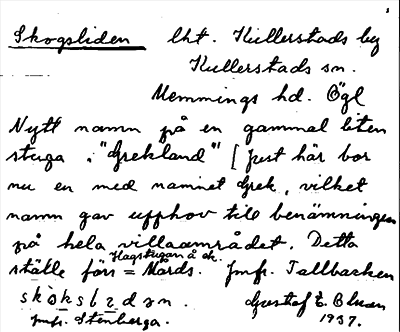 Skogsliden lht. Kullerstads by
Kullerstads sn.
Memmings hd. Ögl
Nytt namn på en gammal liten
stuga i "Grekland" [Just här bor
nu en med namnet Grek, vilket
namn gav upphov till benämningen
på hela villaområdet. Detta
Hagstugan å ek.
ställe förr = Mårds. Jmfr. Tallbacken
Gustaf E.
jmfr. Stenberga. 1937.